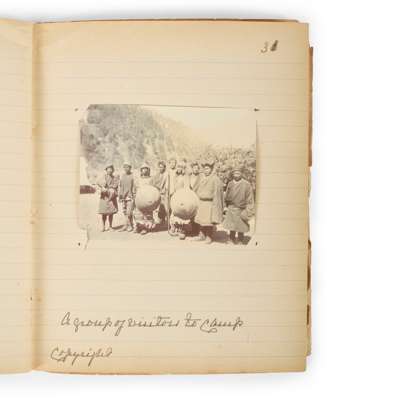 31
A group of visitors to camp
copyright